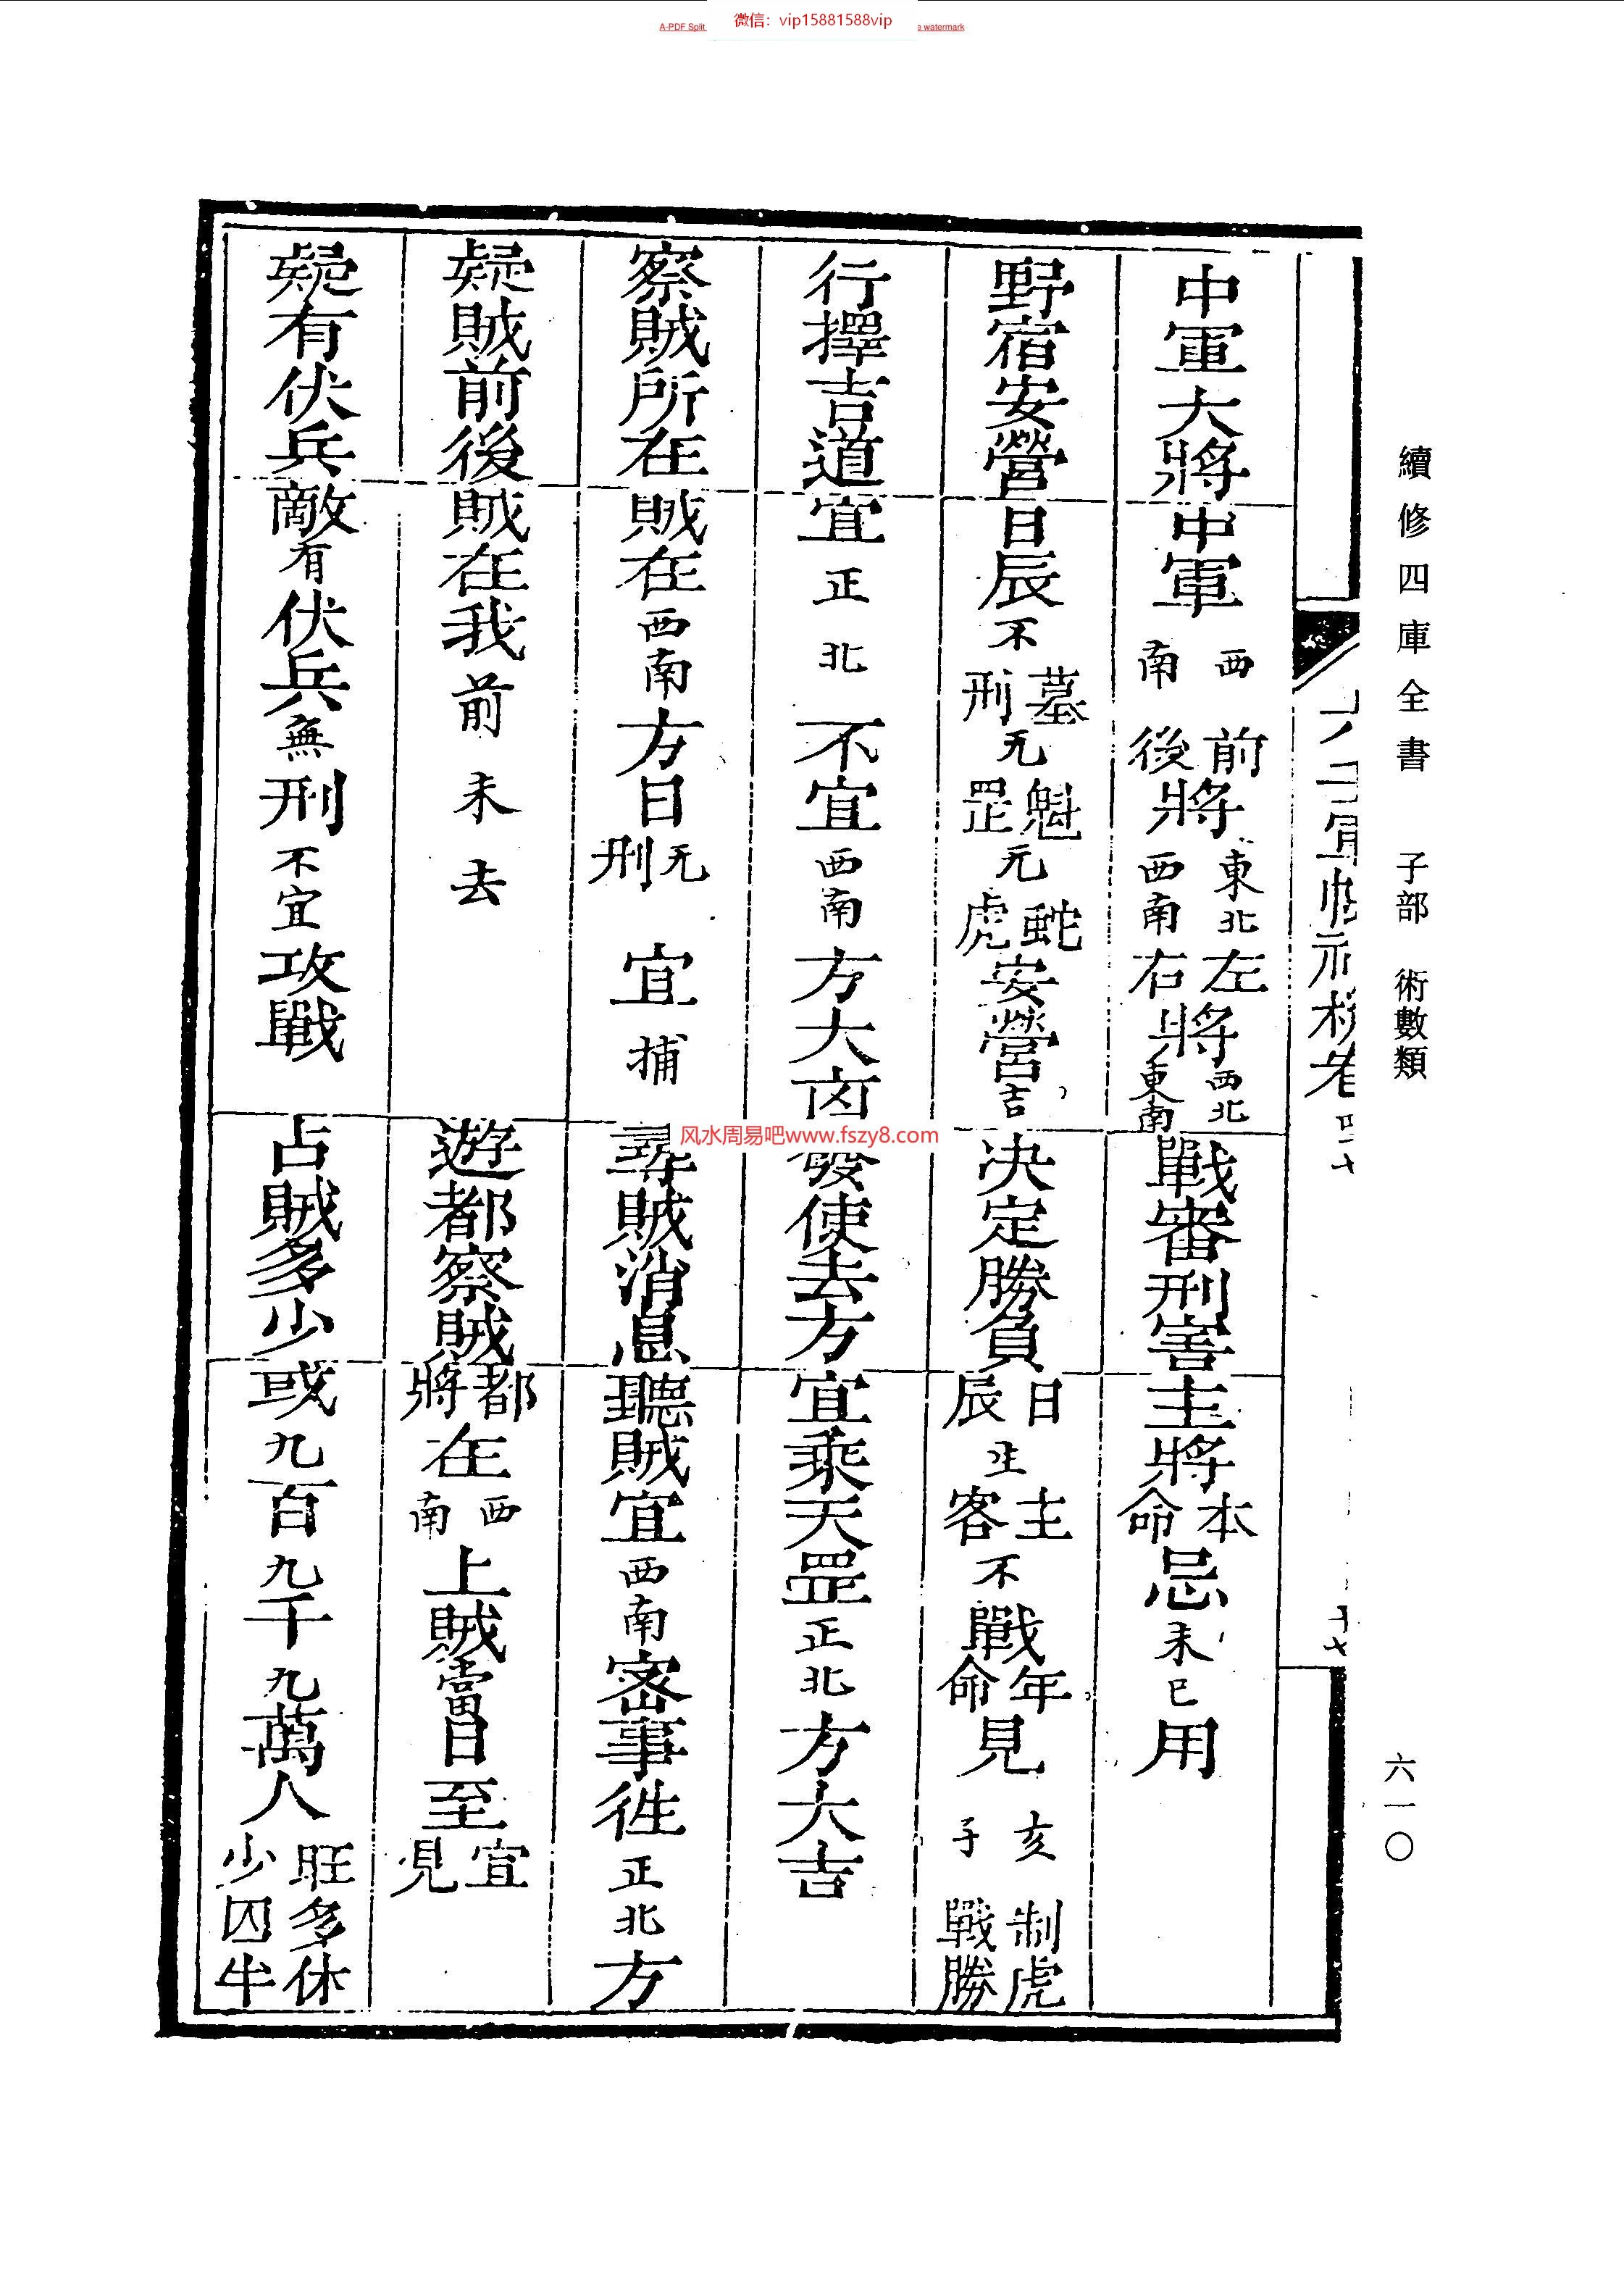 微信：vip15881588vip
A-PDF Split
e watermark
續修四庫全書 子部 術數類
六一〇
中軍大將 中軍 西南 前後將 東北 西南 左右將 西北 東南 戰審刑害 主將 本命 忌 未巳 用
野宿安營 日辰 不 墓刑 无 魁罡 元 蛇虎 安營 吉 決定勝負 日辰 生 主客 不 戰 年命 見 亥子 制虎戰勝
行擇吉道 宜 正北 不宜 西南 方大凶 發使去方 宜乘天罡 正北 方大吉
察賊所在 賊在 西南 方日 无刑 宜 捕 尋賊消息 聽賊宜 西南 密事徃 正北 方
疑賊前後 賊在我 前 未去 遊都察賊 都將 在 西南 上賊 當 日至 宜見
疑有伏兵 敵 有 伏兵 無 刑 不宜 攻戰 占賊多少 或 九 百 九 千 九 萬人 旺多休少囚半
风水周易吧www.fszy8.com